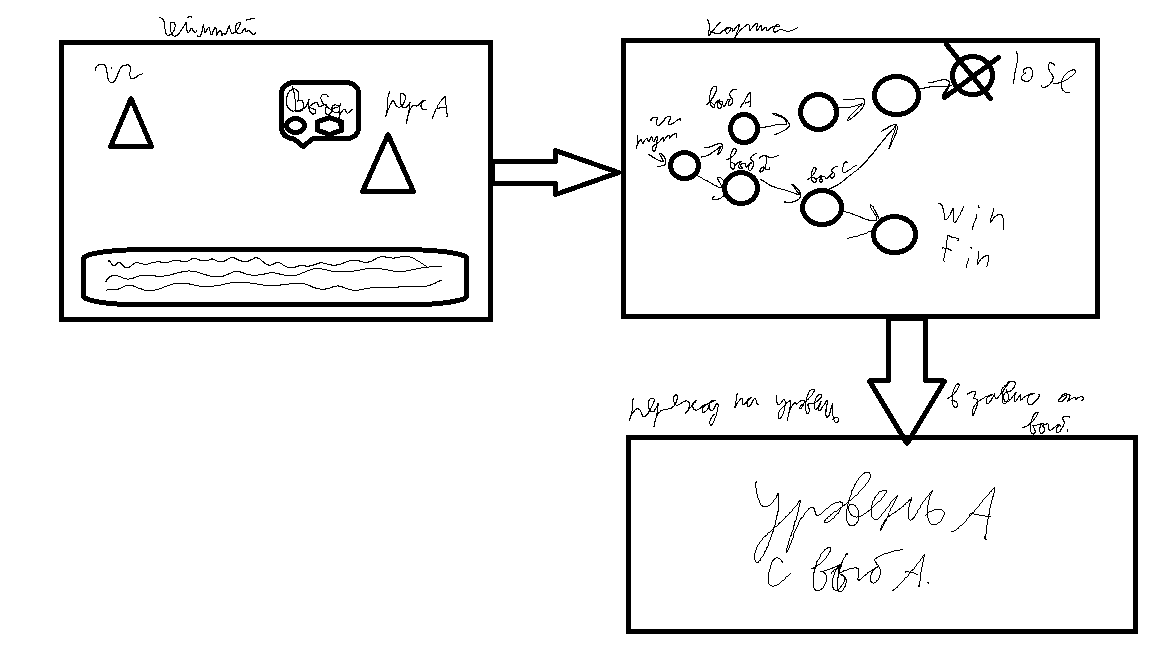 Геймплей
гг
Выбор
перс А
Карта
lose
выб А
гг
выб Б
выб С
Win
Fin
переход на уровень
в завис от
выб.
уровень А
с выб А.